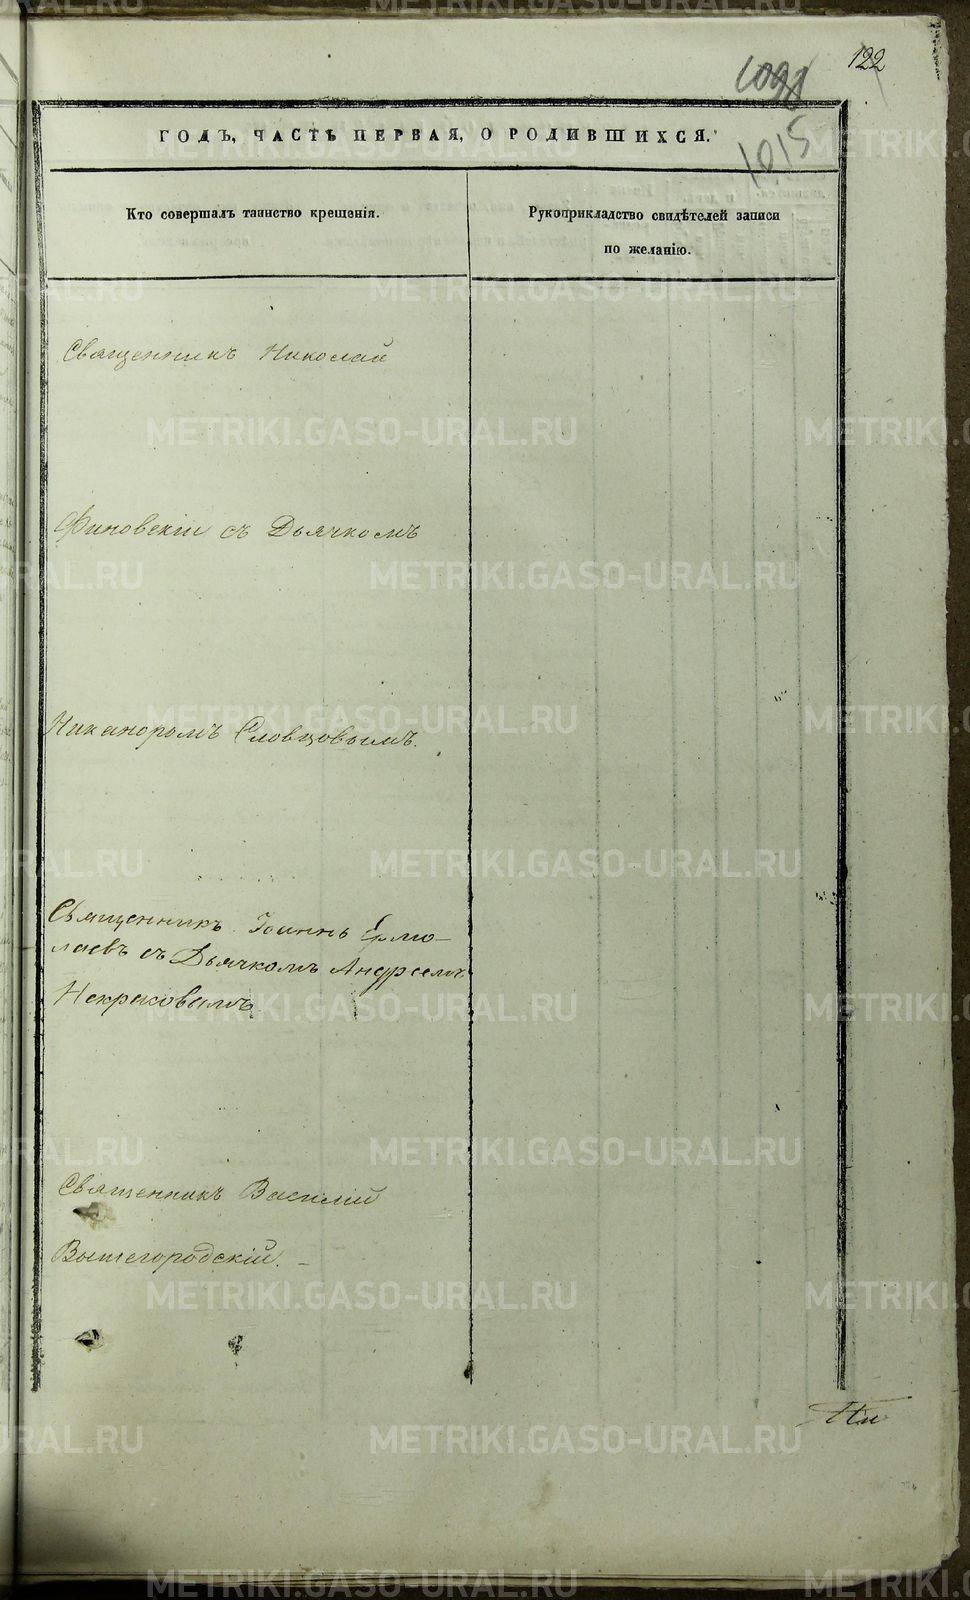 122
1015
ГОДЪ, ЧАСТЬ ПЕРВАЯ, О РОДИВШИХСЯ.
Кто совершалъ таинство крещенія.
Рукоприкладство свидѣтелей записи
по желанію.
Священникъ Николай
Финовскій съ Дьячкомъ
Никаноромъ Словцовымъ.
Священникъ Іоаннъ Ермо-
лаевъ съ Дьячкомъ Андреемъ
Некрасовымъ
Священникъ Василій
Вышегородскій.
METRIKI.GASO-URAL.RU